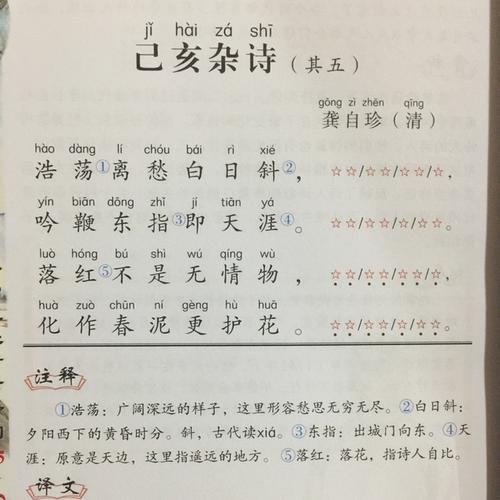 jǐ hài zá shī
己亥杂诗（其五）
gōng zì zhēn qīng
龚自珍（清）
hào dàng lí chóu bái rì xié
浩荡①离愁白日斜②，☆☆/☆☆/☆☆/☆，
yín biān dōng zhǐ jí tiān yá
吟鞭东指③即天涯④。☆☆/☆☆/☆☆/☆。
luò hóng bú shì wú qíng wù
落红⑤不是无情物，☆☆/☆☆/☆☆/☆，
huà zuò chūn ní gèng hù huā
化作春泥更护花。☆☆/☆☆/☆☆/☆。
注释
①浩荡：广阔深远的样子，这里形容愁思无穷无尽。②白日斜：
夕阳西下的黄昏时分。斜，古代读xiá。③东指：出城门向东。④天
涯：原意是天边，这里指遥远的地方。⑤落红：落花，指诗人自比。
译文